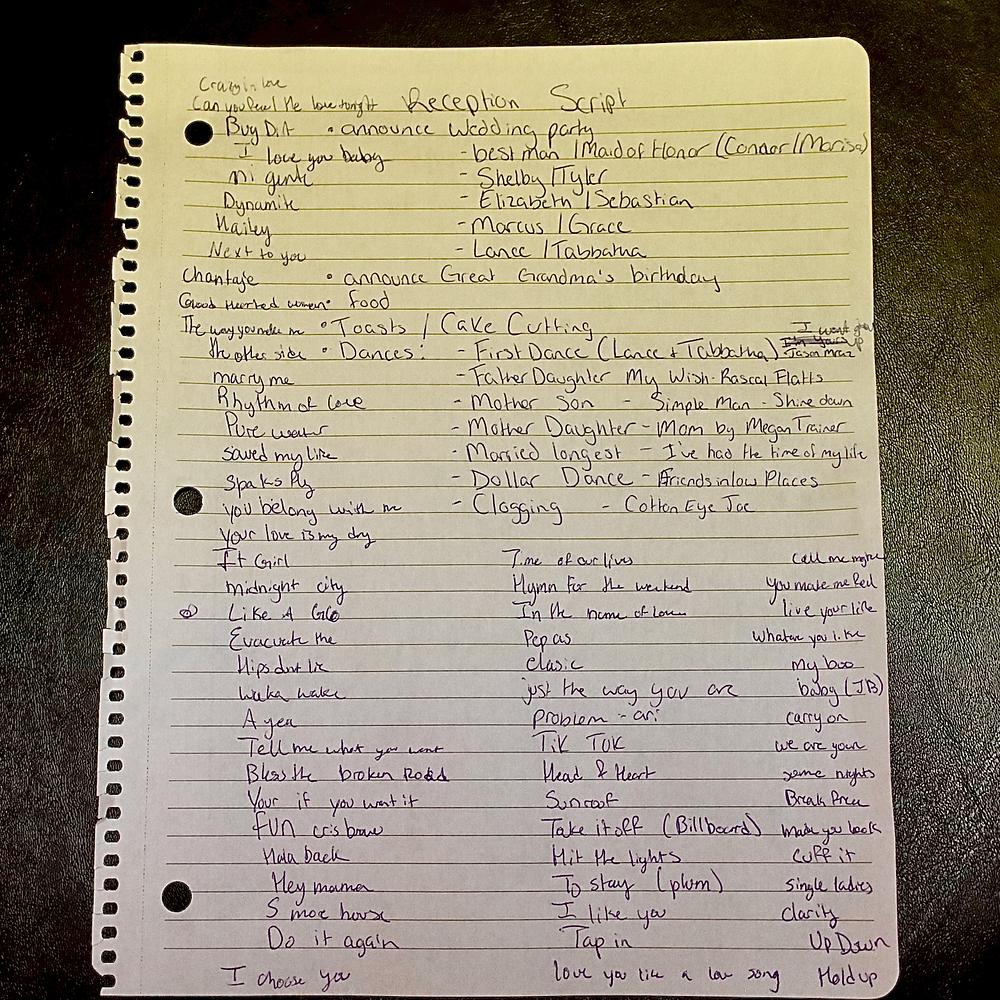 Crazy in love
Can you feel the love tonight Reception Script
Bug D.A • announce Wedding party
I love you baby - best man / Maid of Honor (Connor / Marisa)
mi gente - Shelby / Tyler
Dynamite - Elizabeth / Sebastian
Hailey - Marcus / Grace
Next to you - Lance / Tabbatha
Chantaje • announce Great Grandma's birthday
Good Hearted women • food
The way you make me • Toasts / Cake Cutting I wont give up
the other side • Dances: - First Dance (Lance + Tabbatha) Jason Mraz
marry me - Father Daughter My Wish - Rascal Flatts
Rhythm of love - Mother Son - Simple Man - Shine down
Pure water - Mother Daughter - Mom by Megan Trainer
saved my life - Married longest - I've had the time of my life
Sparks fly - Dollar Dance - Friends in low Places
you belong with me - Clogging - Cotton Eye Joe
your love is my drg
It Girl Time of our lives Call me maybe
midnight city Hymn For the weekend You make me feel
Like A G6 In the name of Love live your life
Evacuate the Pepas Whatev you like
Hips dont lie Clasic My boo
waka waka just the way you are baby (JB)
A yea Problem - ari carry on
Tell me what you want TiK ToK we are youn
Bless the broken Road Head & Heart some nights
Your if you want it Sunroof Break Free
FUN cris brow Take it off (Billboard) made you look
Hola back Hit the lights Cuff it
Hey mama To stay (plum) single ladies
S moe house I like you clarity
Do it again Tap in Up Down
I choose you love you like a love song Hold up